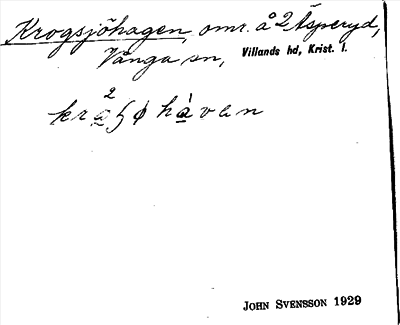 Krogsjöhagen, omr. å 2 Äsperyd,
Vånga sn, Villands hd, Krist. l.
John Svensson 1929